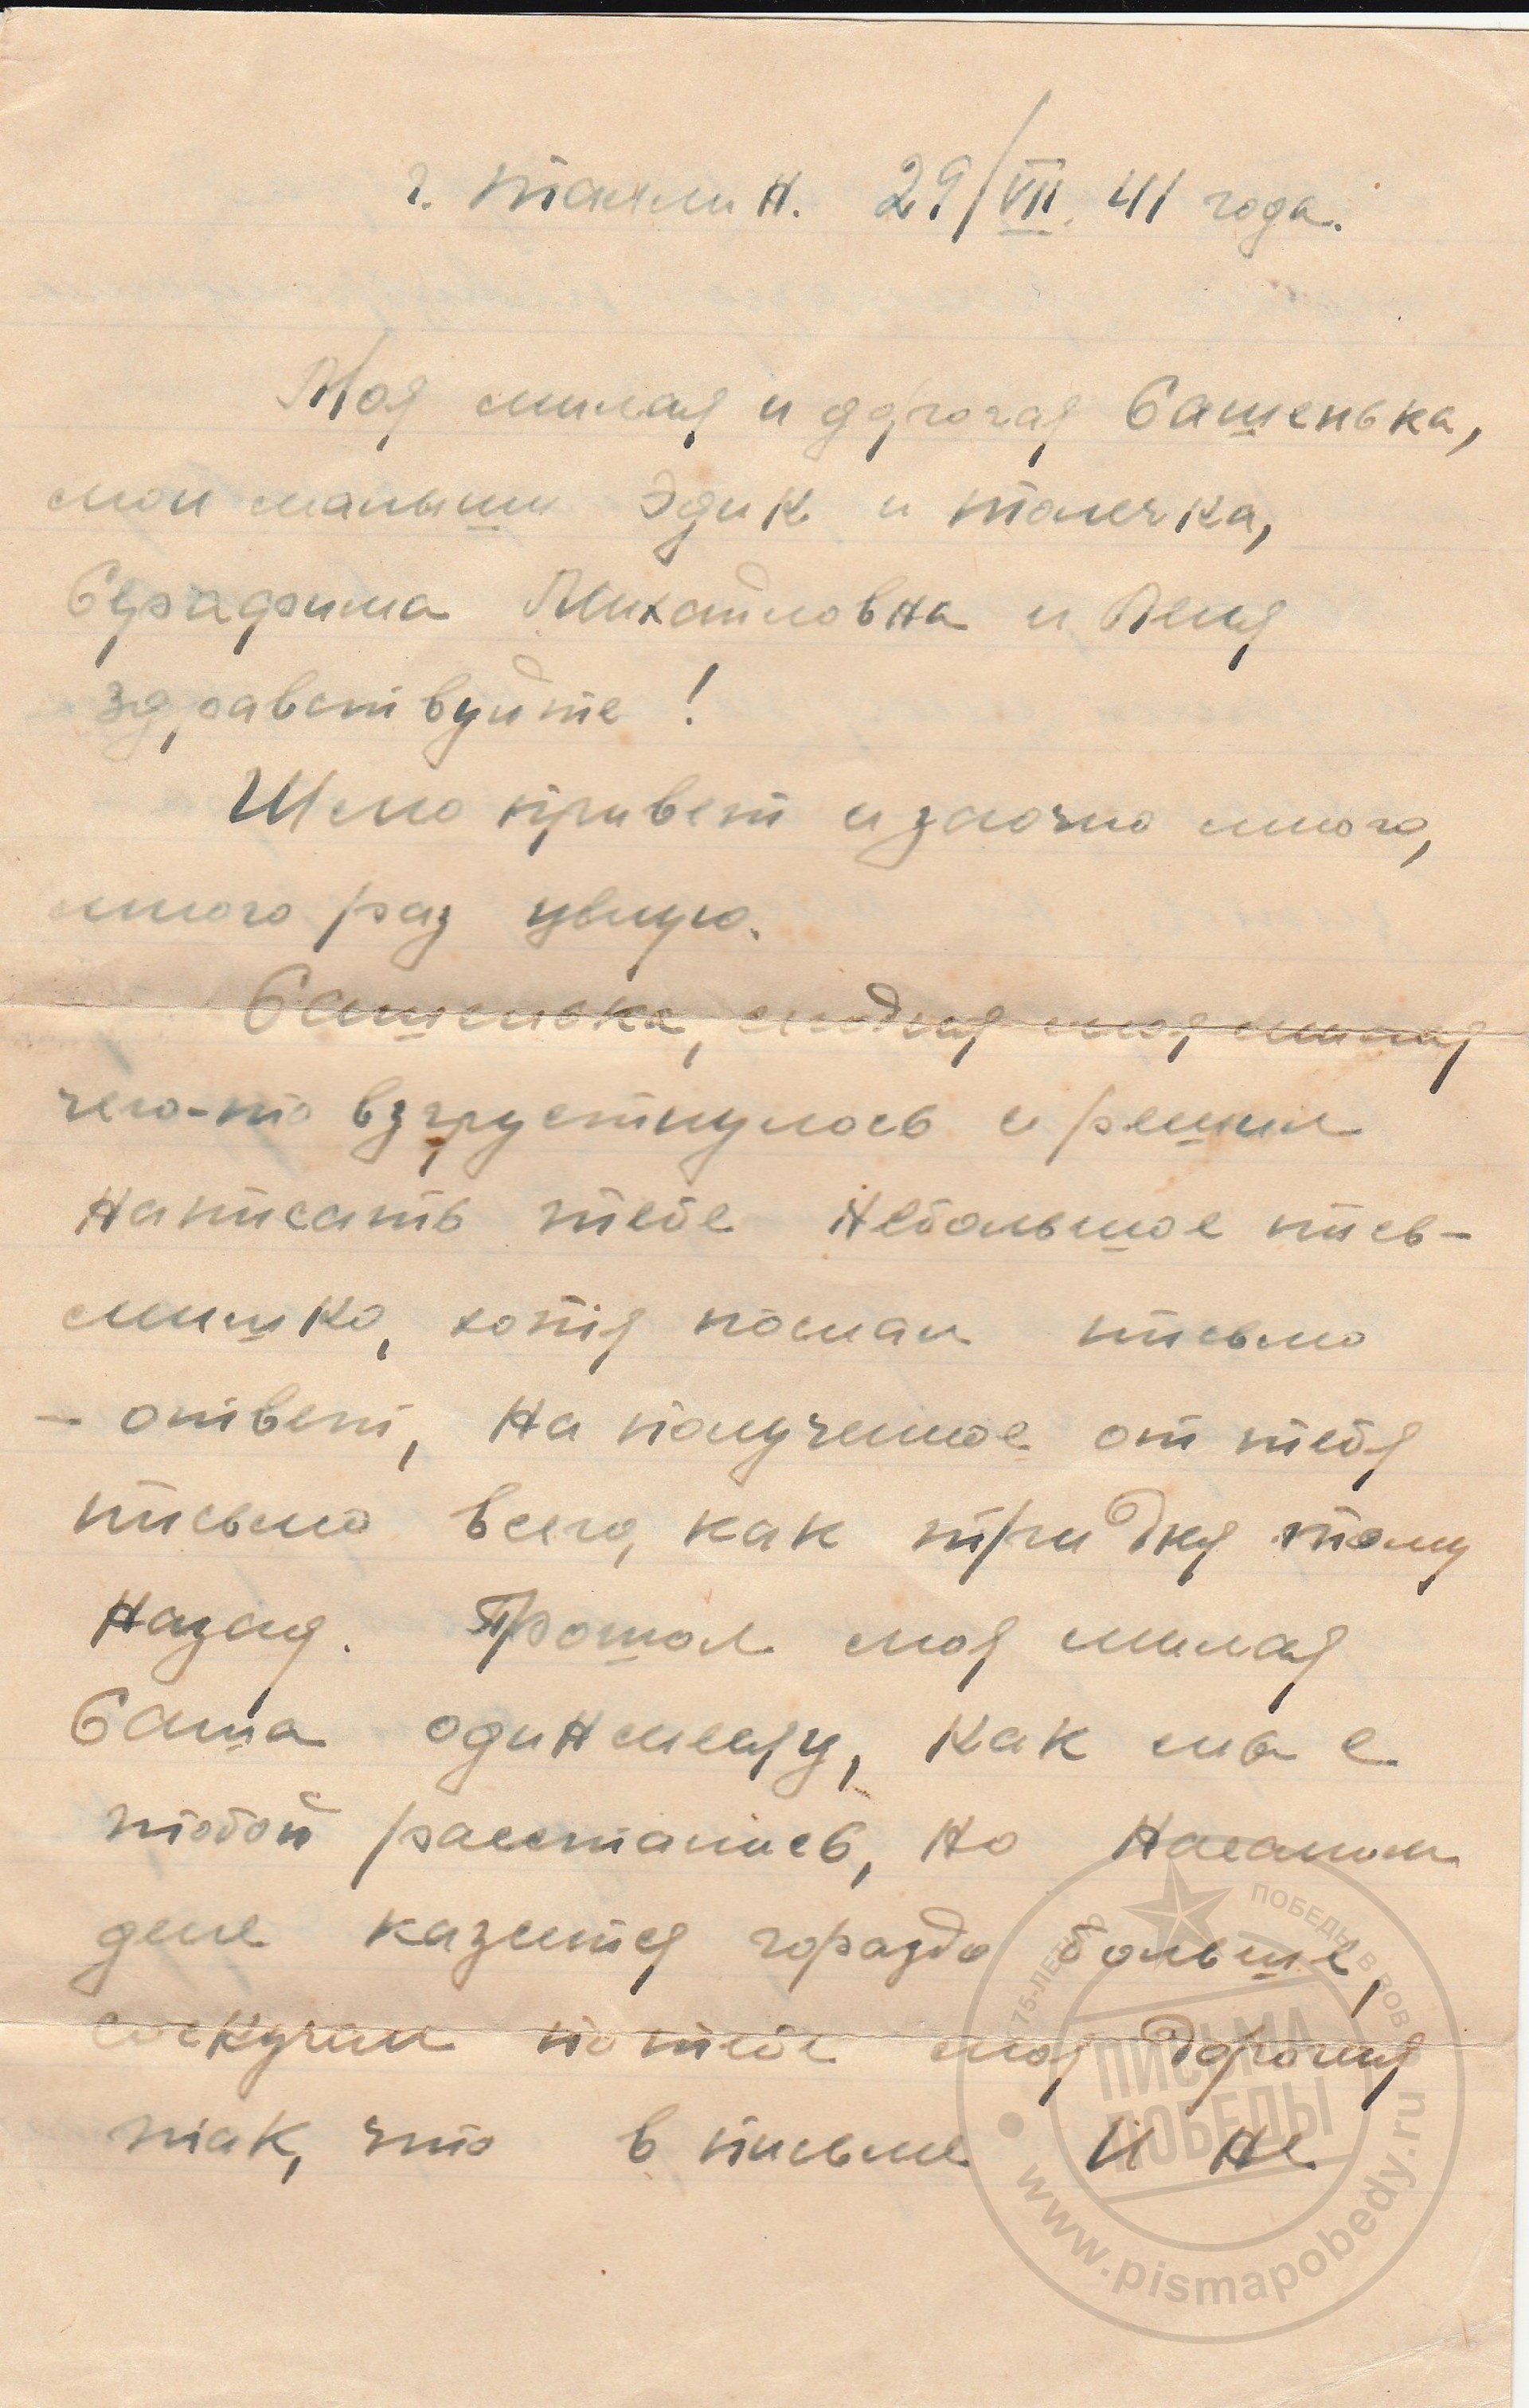 г. Таллин. 29/VII 41 года.
Моя милая и дорогая Сашенька,
мои малыши Эдик и Толечка,
Серафима Михайловна и Леня
здравствуйте!
Шлю привет и заочно много,
много раз целую.
Сашенька, сегодня моя милая
чего-то взгрустнулось и решил
написать тебе небольшое пись-
мишко, хотя послал письмо
- ответ, на полученное от тебя
письмо всего, как три дня тому
назад. Прошол моя милая
Саша один месяц, как мы с
тобой расстались, но на самом
деле кажится гораздо больше,
соскучил по тебе моя дорогая
так, что в письме и не
75-ЛЕТИЮ ПОБЕДЫ В ВОВ
ПИСЬМА
ПОБЕДЫ
www.pismapobedy.ru